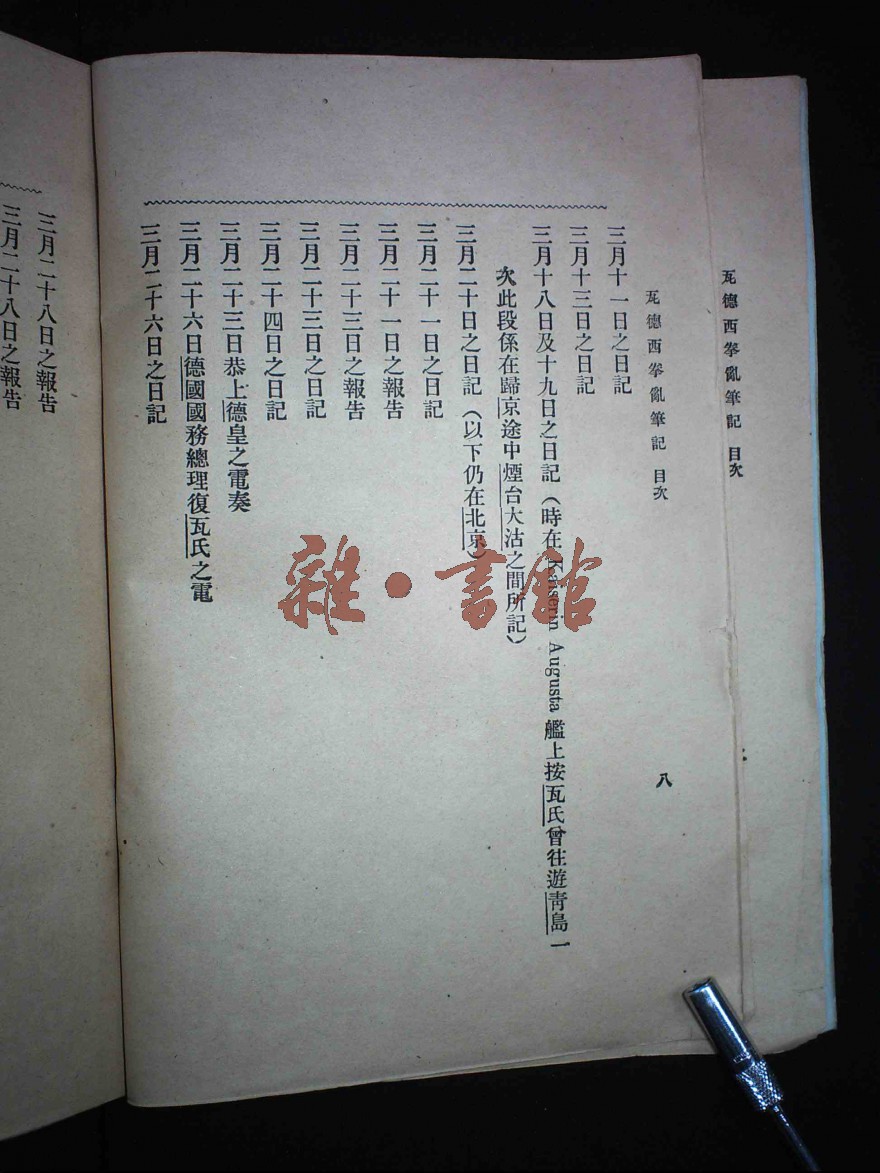 瓦德西拳亂筆記 目次
瓦德西拳亂筆記 目次 八
三月十一日之日記
三月十三日之日記
三月十八日及十九日之日記(時在 Kaiserin Augusta 艦上按瓦氏曾往遊青島一
次此段係在歸京途中煙台大沽之間所記)
三月二十日之日記(以下仍在北京)
三月二十一日之日記
三月二十一日之報告
三月二十三日之報告
三月二十三日之日記
三月二十四日之日記
三月二十三日恭上德皇之電奏
三月二十六日德國國務總理復瓦氏之電
三月二十六日之日記
三月二十八日之報告
三月二十八日之報告
雜·書館